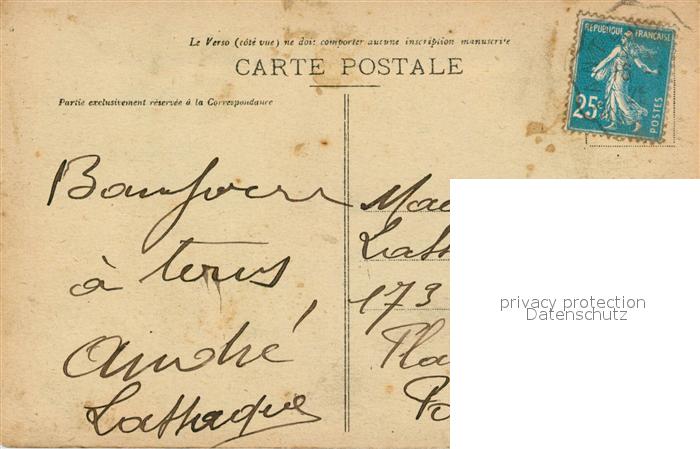 Le Verso (côté vue) ne doit comporter aucune inscription manuscrite
CARTE POSTALE
Partie exclusivement réservée à la Correspondance
REPUBLIQUE FRANÇAISE
25c
POSTES
Bonjour
à tous
André
173
privacy protection
Datenschutz